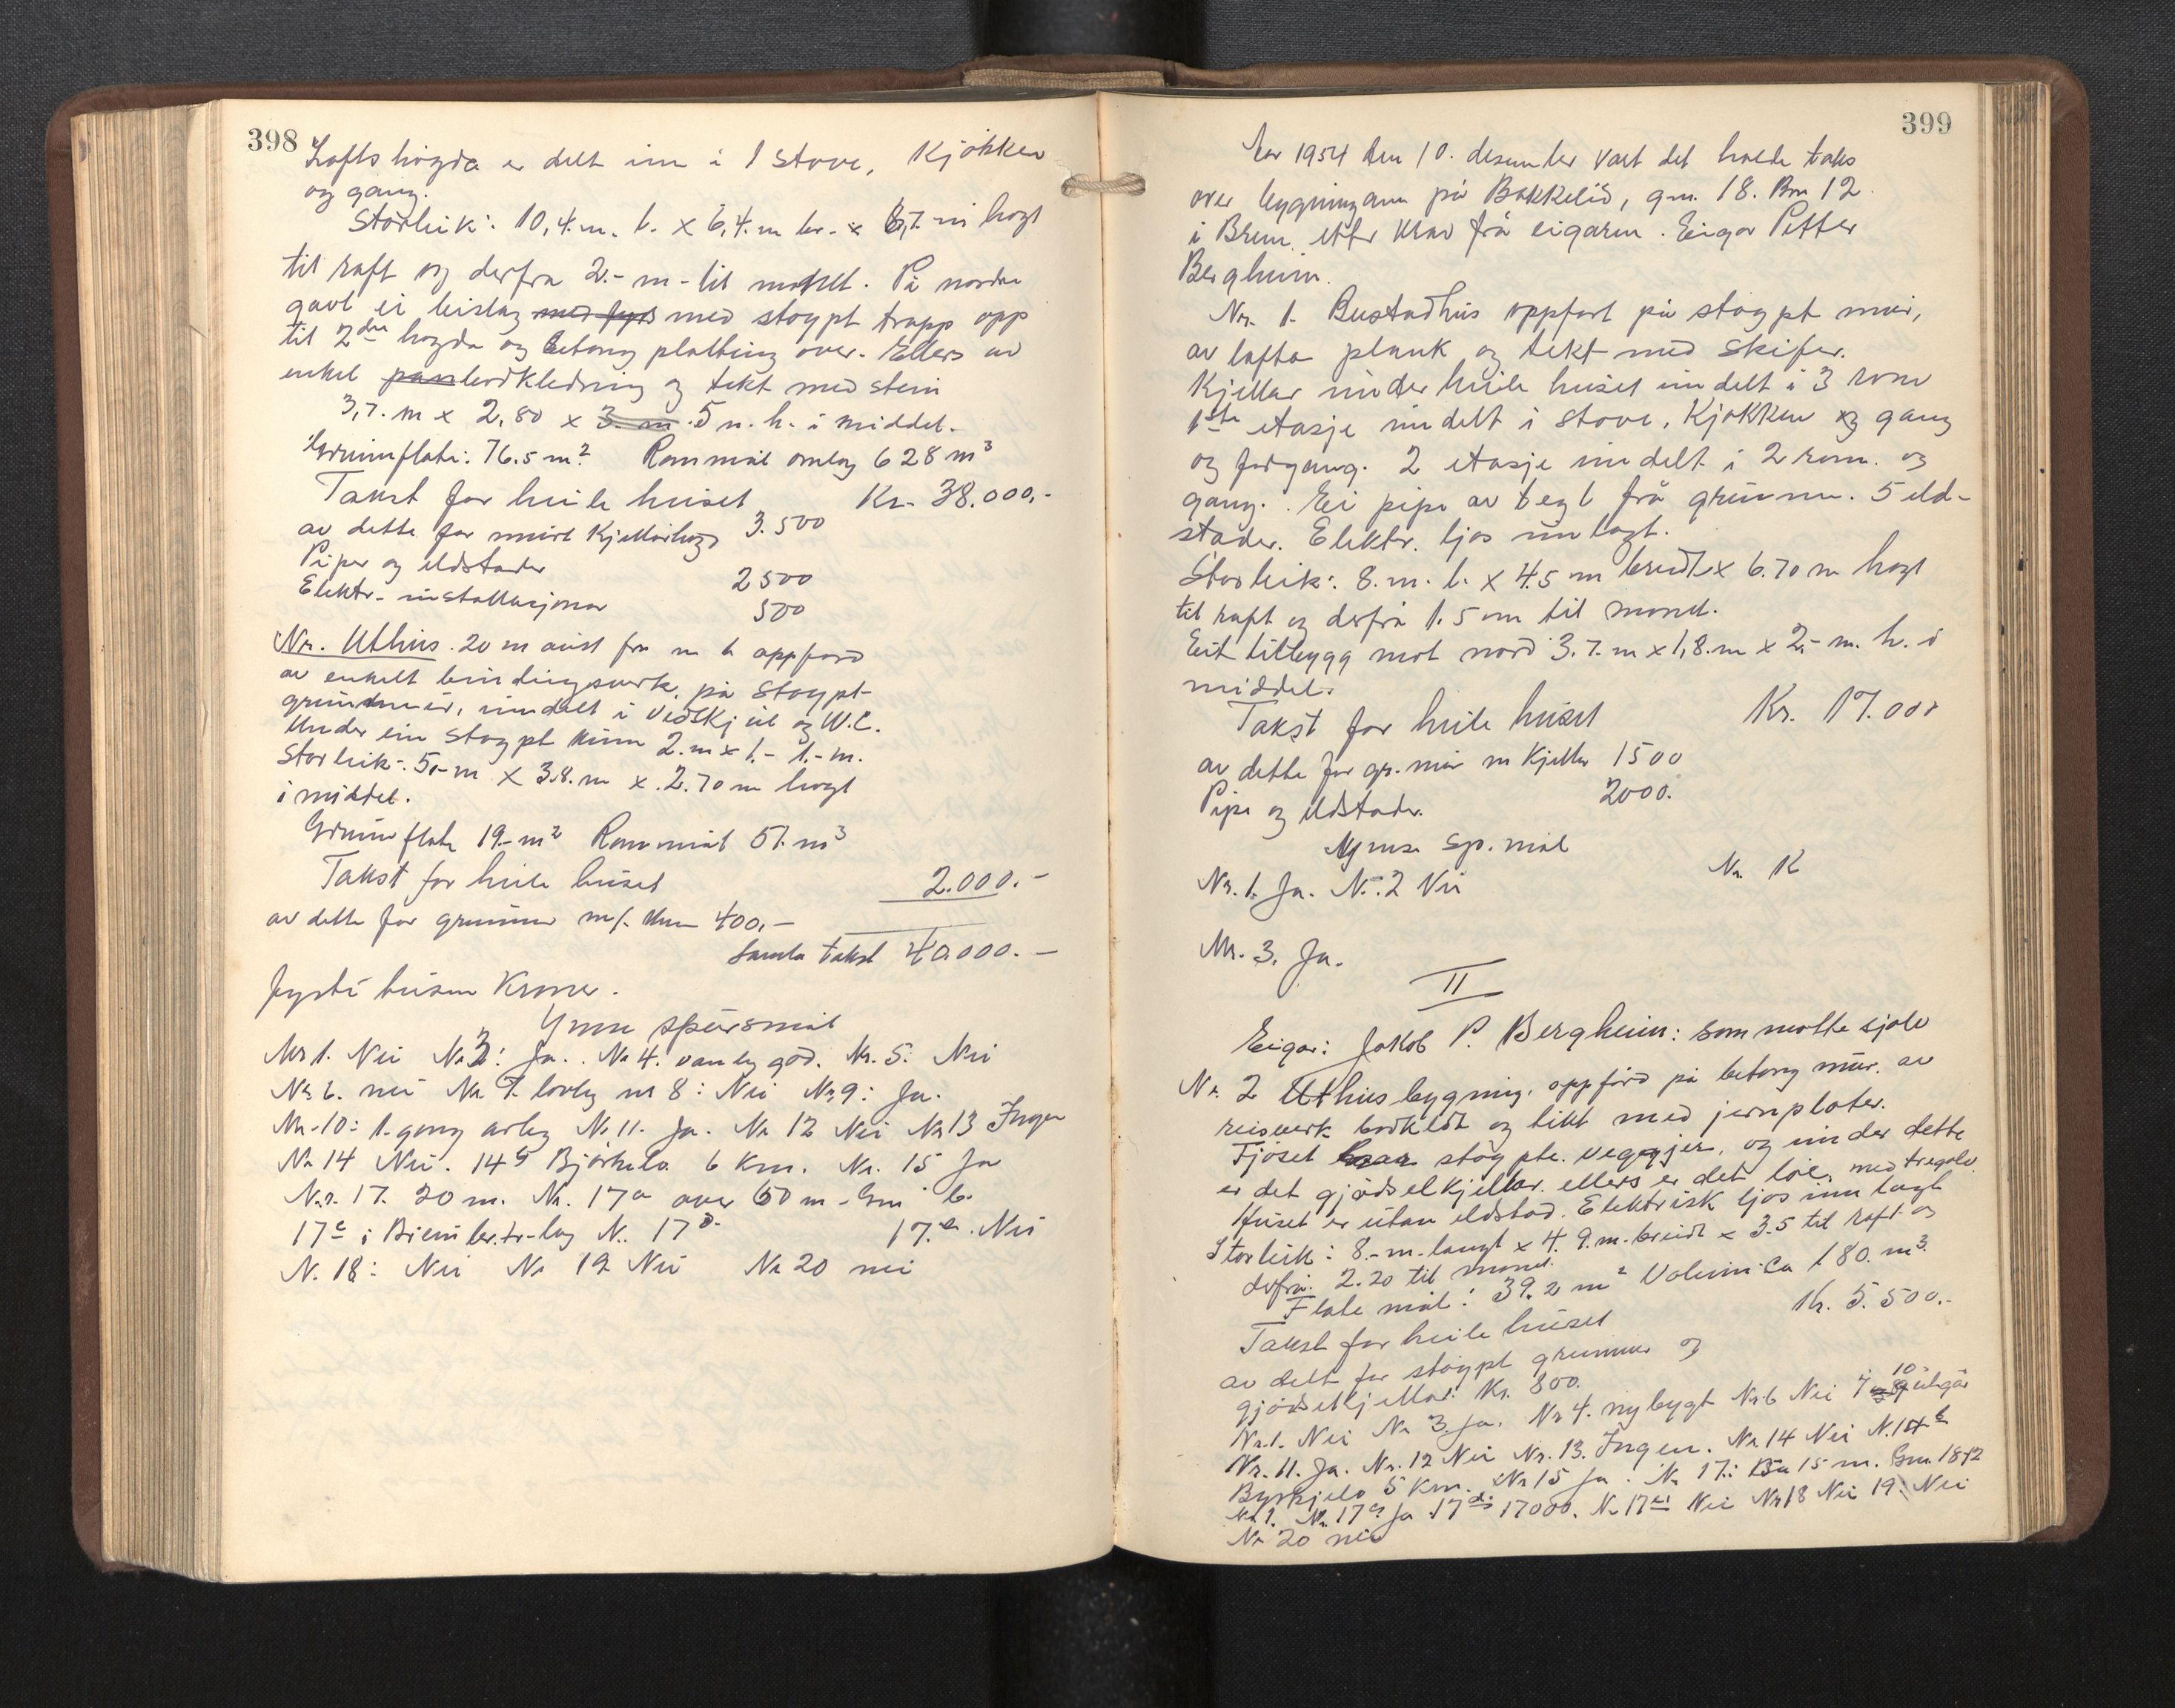 398
Loftshøgda er delt inn i 1 stove, Kjøkken
og gang.
Storleik: 10,4. m. l. x 6,4. m br. x 6,7. m høgt
til raft og derfra 2.- m - til mønet. På nordre
gavl ei bislag med støypt trapp opp
til 2dre høgda og betong platting over. Ellers av
enkel bordkledning og tekt med stein
3,7. m x 2,80 x 5 m. h. i middel.
Grunnflate: 76.5 m² Rommål omlag 628 m³
Takst for heile huset Kr. 38.000,-
av dette for murt Kjellarhøgd 3.500
Piper og eldstader 2500
Elektr. installasjonar 500
Nr. Uthus. 20 m aust fra nr 1 oppførd
av enkelt bindingsverk, på støypt
grunnmur, inndelt i vedskjul og W.C.
Under ein støypt kum 2. m x 1.- 1.- m.
Storleik: 5,- m x 3.8. m x 2.70 m høgt
i middel.
Grunnflate 19.- m² Rommål 51. m³
Takst for heile huset 2.000.-
av dette for grunnmur m/. kum 400,-
Samla takst 40.000.-
Fyrti tusen Kroner.
Ymse spørsmål
Nr 1. Nei Nr 3: Ja. Nr 4. vanleg god. Nr. 5: Nei
Nr 6. nei Nr 7. lovleg nr 8: Nei Nr 9: Ja.
Nr. 10: 1. gong årleg Nr 11. Ja. Nr 12 Nei Nr 13 Ingen
Nr 14 Nei. 14b Bjørkelo 6 Km. Nr. 15 Ja
Nr. 17. 20 m. Nr. 17a over 60 m - Gm b.
17c i Breim br.tr-lag N. 17d. 17.e. Nei
N. 18: Nei Nr 19. Nei Nr 20 nei
399
År 1954 den 10. desember vart det halde takst
over bygningane på Bakkelid, gnr. 18. Bnr 12
i Breim etter krav frå eigaren. Eigar Petter
Bergheim.
Nr. 1. Bustadhus oppført på støypt mur,
av lafta plank og tekt med skifer.
Kjellar under heile huset inndelt i 3 rom
1ste etasje inndelt i stove, Kjøkken og gang
og forgang. 2 etasje inndelt i 2 rom. og
gang. Ei pipe av tegl frå grunnen. 5 eld-
stader. Elektr. ljos innlagt.
Storleik: 8. m. l. x 4.5 m breidt x 6.70 m høgt
til raft og derfrå 1.5 om til mønet.
Eit tilbygg mot nord 3.7. m x 1,8. m x 2,- m. h. i
middel.
Takst for heile huset Kr. 17.000
av dette for gr. mur m Kjellar 1500
Pipe og eldstader. 2000.
Ymse sp. mål
Nr. 1. Ja. Nr. 2 Nei Nr. K
Nr. 3. Ja.
II
Eigar: Jakob P. Bergheim: som møtte sjølv
Nr. 2 Uthusbygning, oppførd på betong mur, av
reisverk bordkledt og tekt med jernplater.
Fjøset støypte veggjer, og under dette
er det gjødselkjellar. ellers er det løe, med tregolv.
Huset er utan eldstad. Elektrisk ljos innlagt
Storleik: 8.- m. langt x 4.9. m. breidt x 3.5 til raft og
derfrå 2.20 til mønet.
Flate mål: 39.2 m² Volum ca 180. m³.
Takst for heile huset Kr. 5.500.-
av dett for støypt grunnmur og
gjødselkjellar Kr. 800.
Nr. 1. Nei Nr 3. Ja. Nr 4. nybygt Nr. 6 Nei 7 10 utgår
Nr. 11. Ja. Nr. 12 Nei Nr. 13. Ingen. Nr. 14 Nei N. 14b
Byrkjelo 5 Km. Nr 15 Ja. Nr 17: 15 m. Gnr. 18/12
Nr 1. Nr. 17c Ja 17d: 17000. Nr 17e: Nei Nr 18 Nei 19. Nei
Nr 20 nei